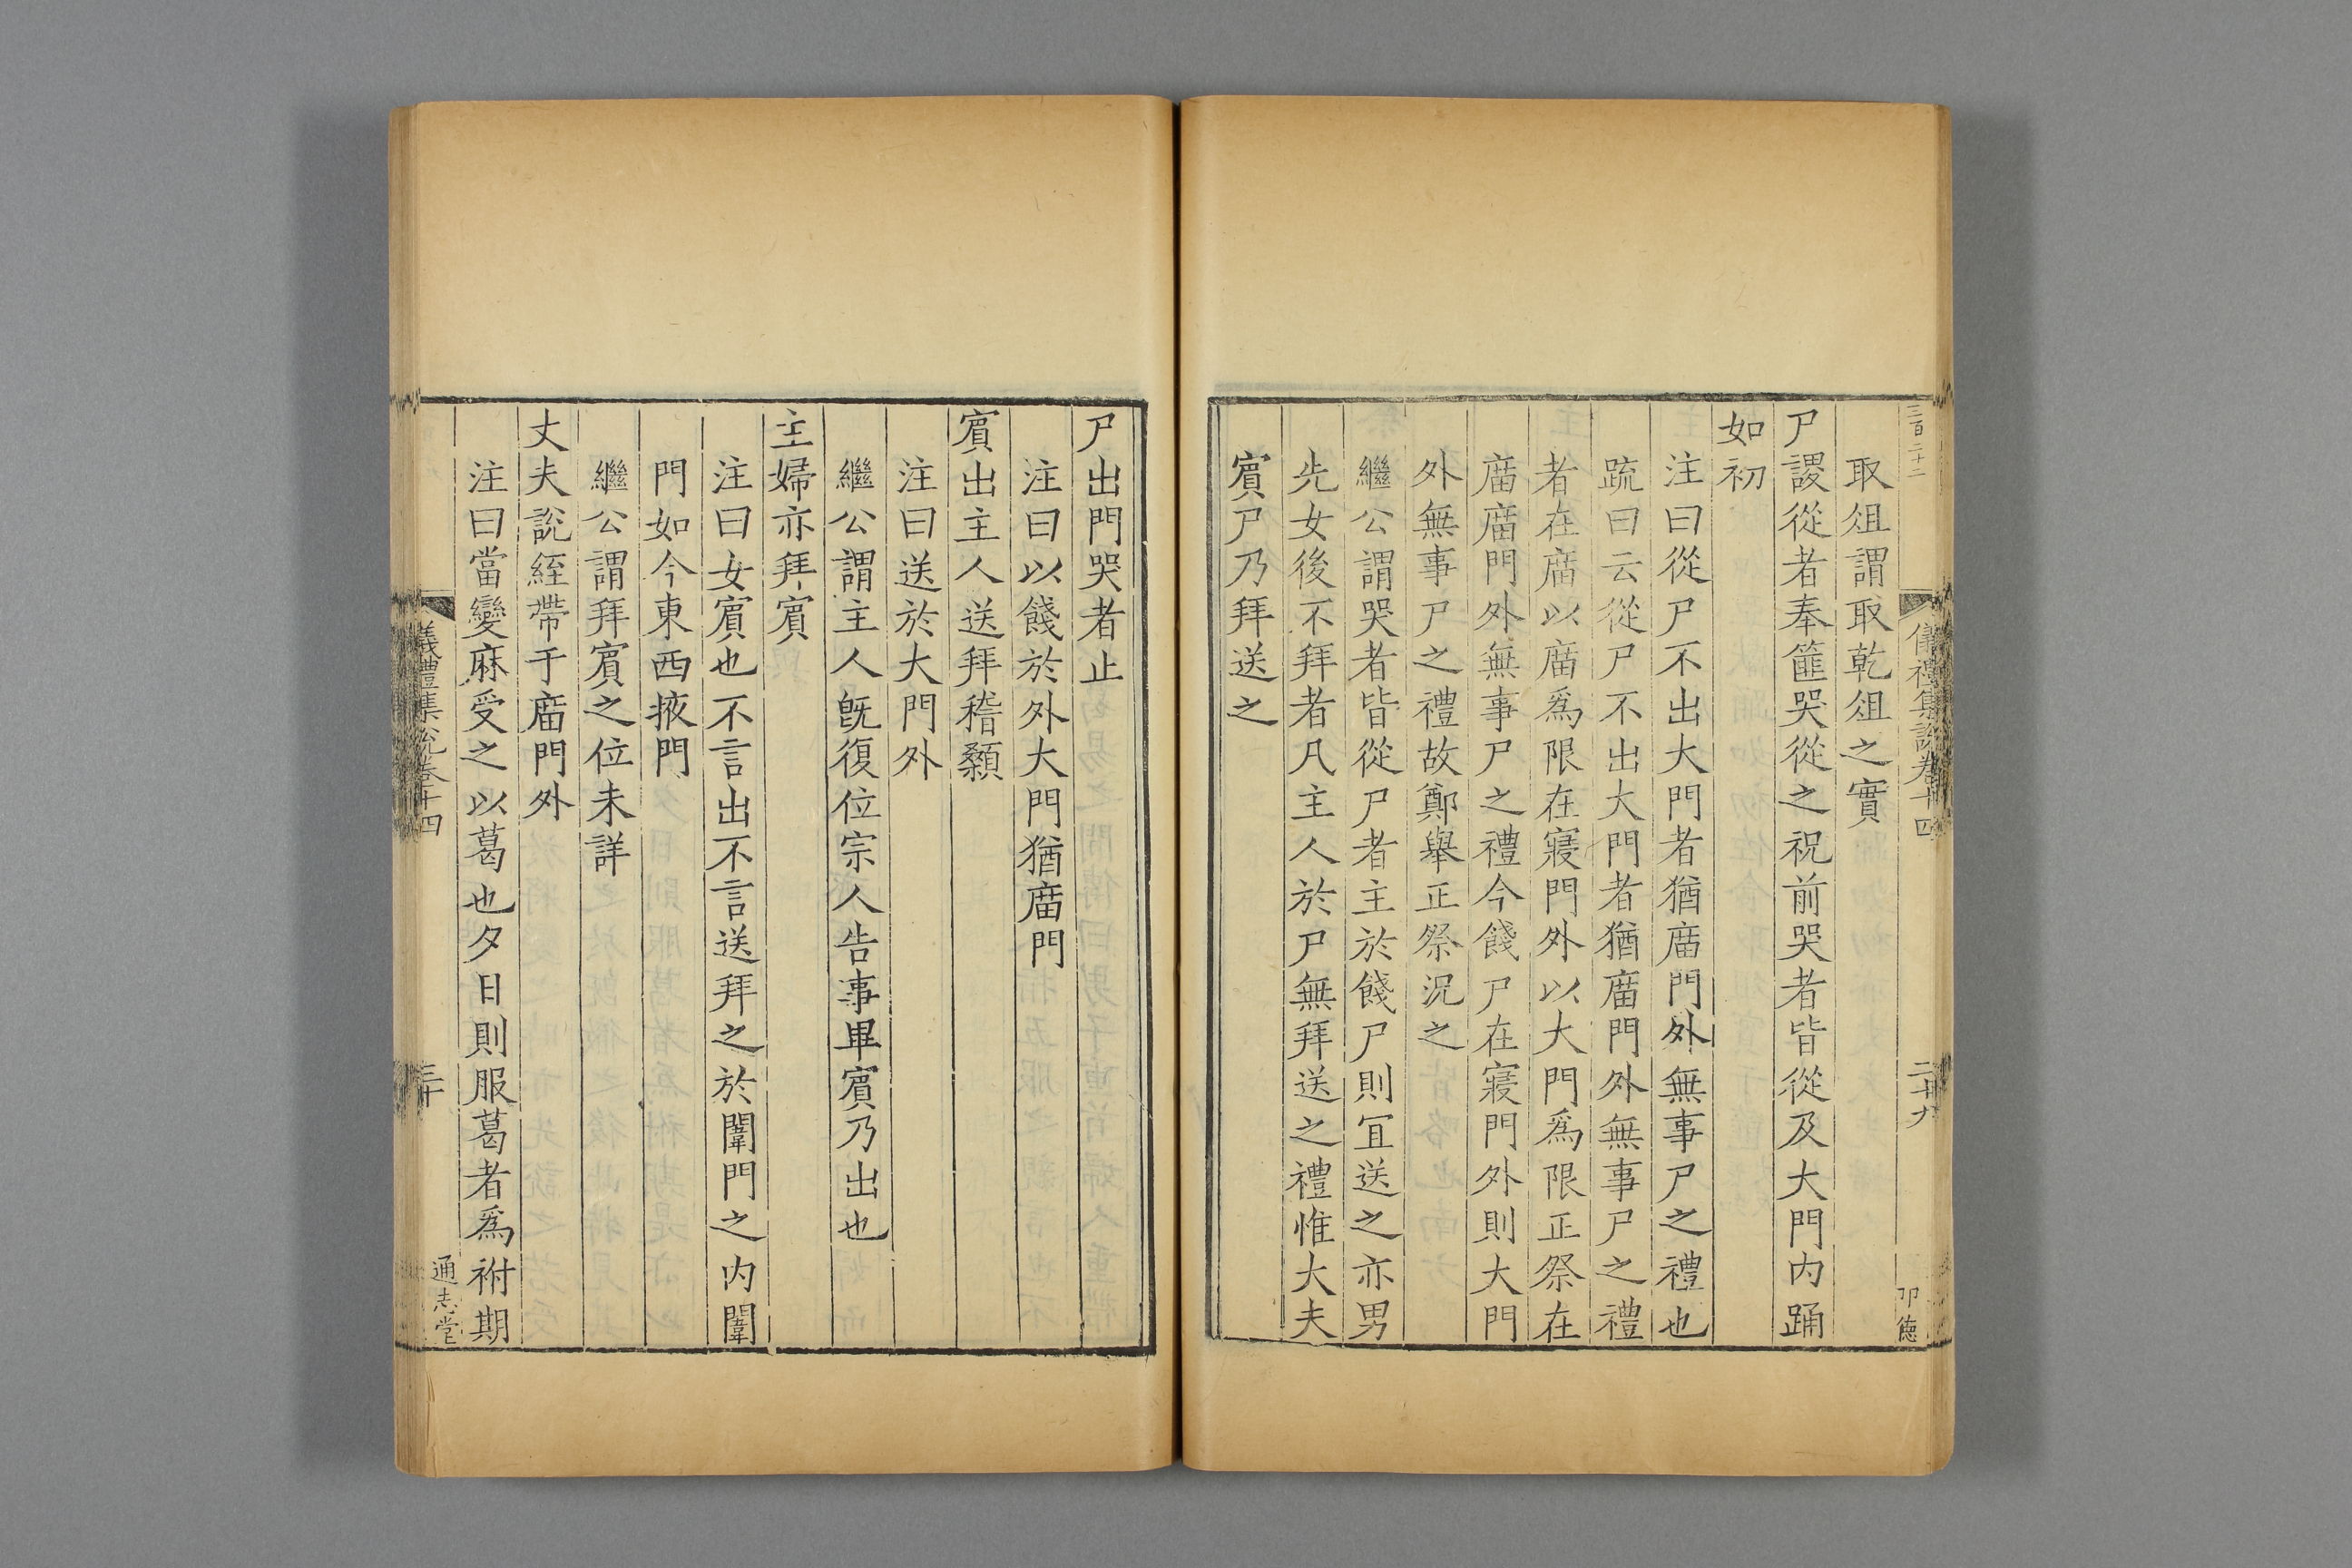 三百二十二
儀禮集說卷十四
二十九
卬德
取俎謂取乾俎之實
尸謖從者奉篚哭從之祝前哭者皆從及大門內踊
如初
注曰從尸不出大門者猶庿門外無事尸之禮也
疏曰云從尸不出大門者猶庿門外無事尸之禮
者在庿以庿爲限在寢門外以大門爲限正祭在
庿庿門外無事尸之禮今餞尸在寢門外則大門
外無事尸之禮故鄭舉正祭況之
繼公謂哭者皆從尸者主於餞尸則冝送之亦男
先女後不拜者凡主人於尸無拜送之禮惟大夫
賔尸乃拜送之
尸出門哭者止
注曰以餞於外大門猶庿門
賔出主人送拜稽顙
注曰送於大門外
繼公謂主人旣復位宗人告事畢賔乃出也
主婦亦拜賔
注曰女賔也不言出不言送拜之於闈門之內闈
門如今東西掖門
繼公謂拜賔之位未詳
丈夫說絰帶于庿門外
注曰當變麻受之以葛也夕日則服葛者爲祔期
儀禮集說卷十四
三十
通志堂